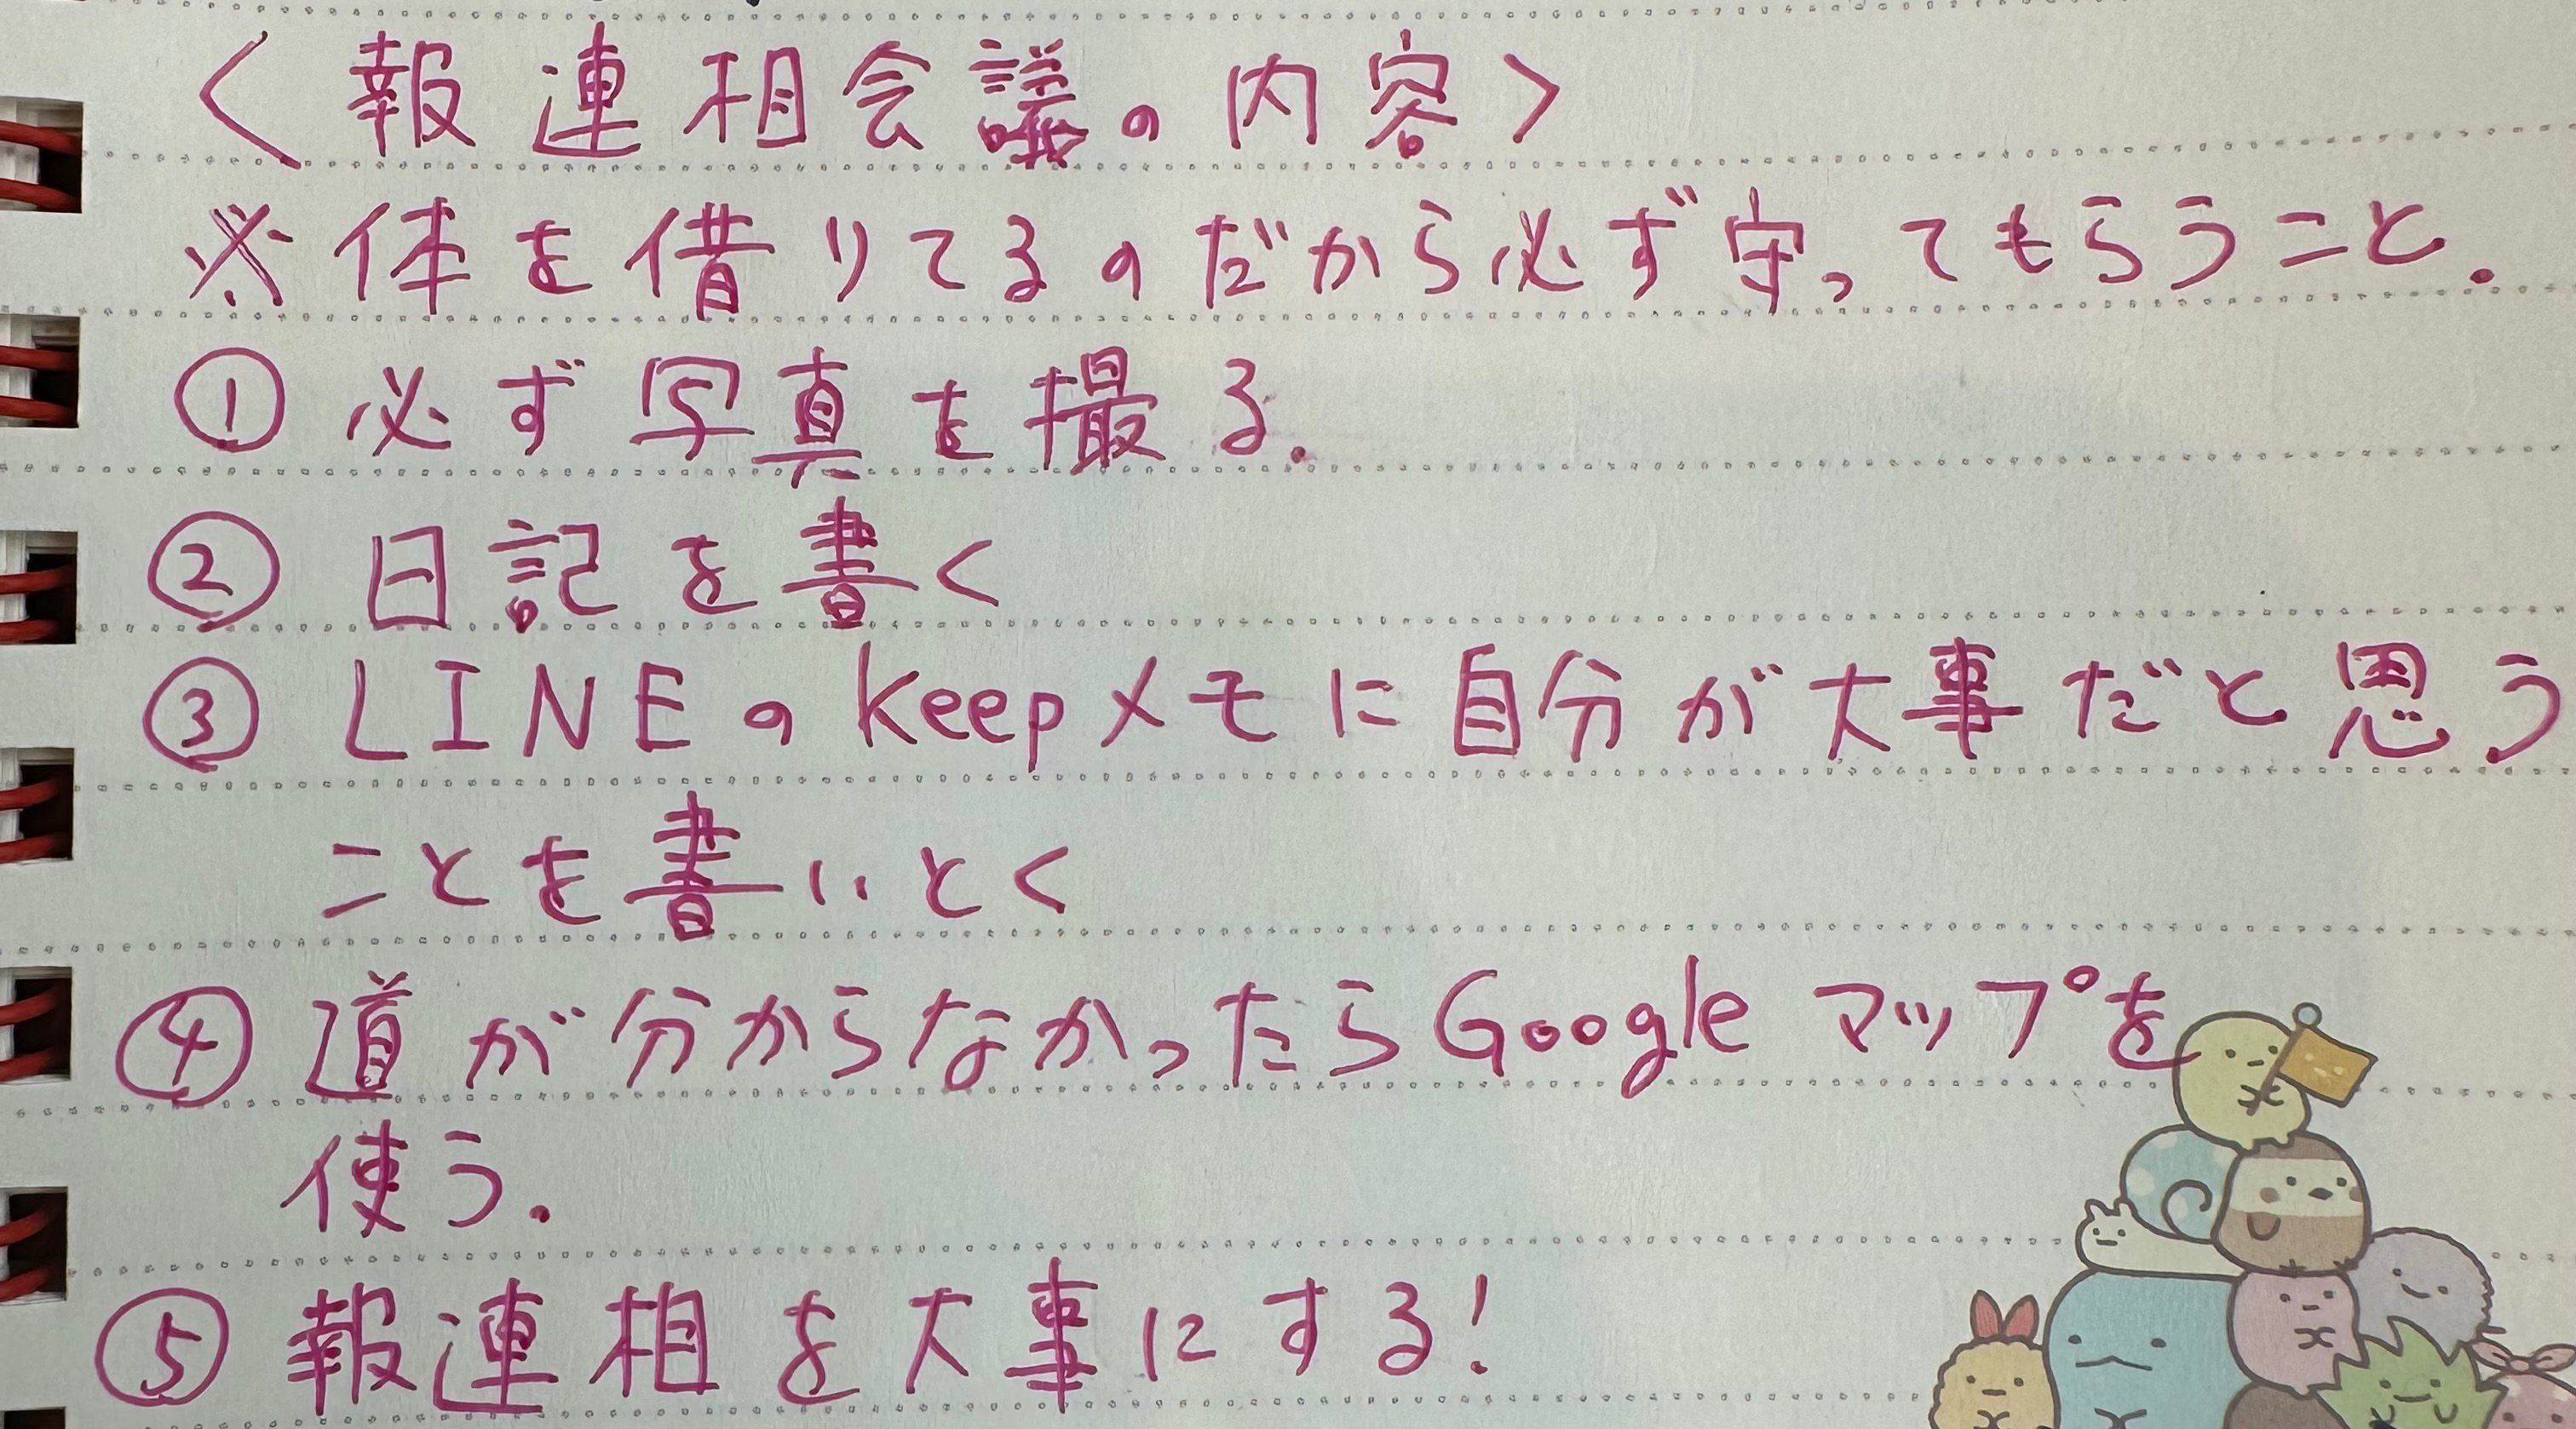 ＜報連相会議の内容＞
※体を借りてるのだから必ず守ってもらうこと.
① 必ず写真を撮る.
② 日記を書く
③ LINEのkeepメモに自分が大事だと思う
ことを書いとく
④ 道が分からなかったらGoogleマップを
使う.
⑤ 報連相を大事にする!